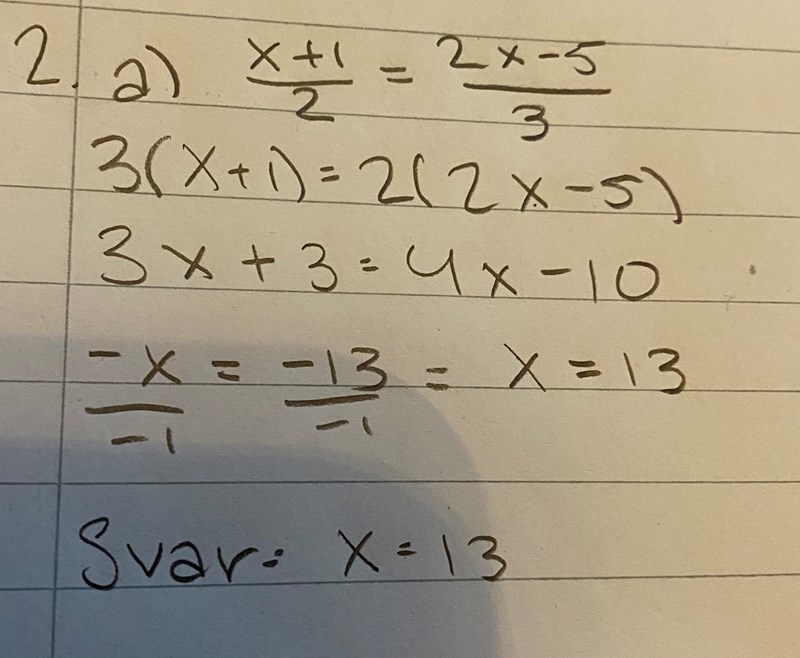 2. a) x+1/2 = 2x-5/3
3(x+1)=2(2x-5)
3x+3=4x-10
-x/-1 = -13/-1 = x=13
Svar: x=13